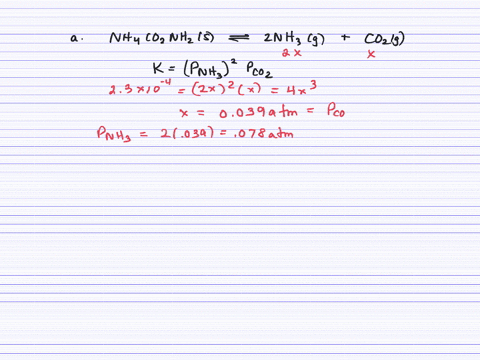 a. NH4CO2NH2(s) ⇌ 2NH3(g) + CO2(g)
2x x
K = (PNH3)² PCO2
2.3x10⁻⁴ = (2x)²(x) = 4x³
x = 0.039atm = PCO
PNH3 = 2(.039) = .078atm